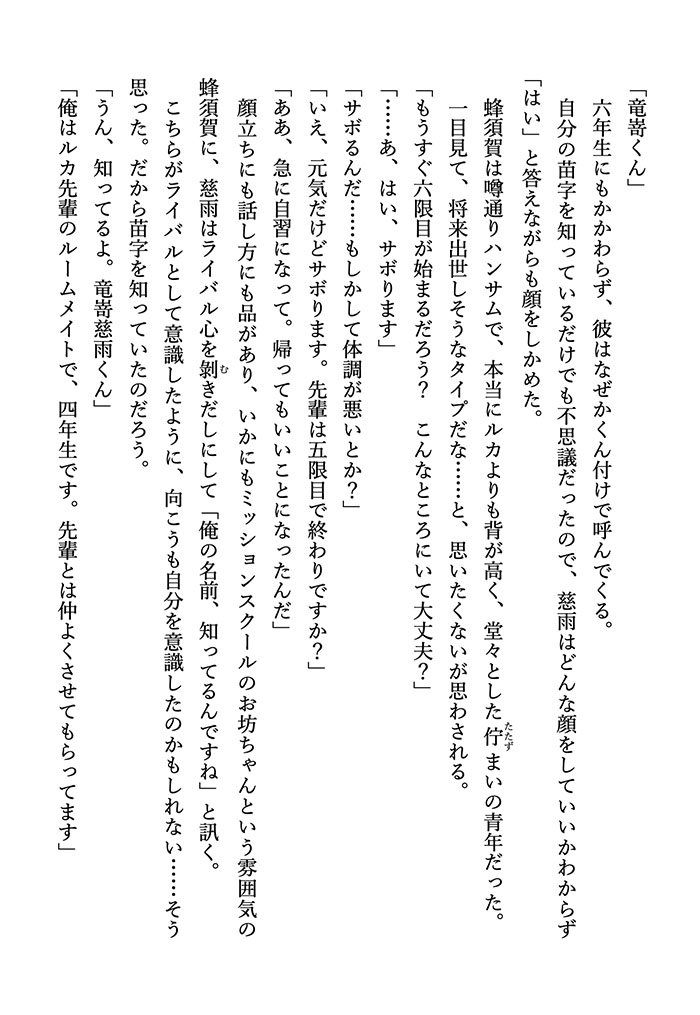 「竜嵜くん」
六年生にもかかわらず、彼はなぜかくん付けで呼んでくる。
自分の苗字を知っているだけでも不思議だったので、慈雨はどんな顔をしていいかわからず
「はい」と答えながらも顔をしかめた。
蜂須賀は噂通りハンサムで、本当にルカよりも背が高く、堂々とした佇たたずまいの青年だった。
一目見て、将来出世しそうなタイプだな……と、思いたくないが思わされる。
「もうすぐ六限目が始まるだろう？　こんなところにいて大丈夫？」
「……あ、はい、サボります」
「サボるんだ……もしかして体調が悪いとか？」
「いえ、元気だけどサボります。先輩は五限目で終わりですか？」
「ああ、急に自習になって。帰ってもいいことになったんだ」
顔立ちにも話し方にも品があり、いかにもミッションスクールのお坊ちゃんという雰囲気の
蜂須賀に、慈雨はライバル心を剝むきだしにして「俺の名前、知ってるんですね」と訊く。
こちらがライバルとして意識したように、向こうも自分を意識したのかもしれない……そう
思った。だから苗字を知っていたのだろう。
「うん、知ってるよ。竜嵜慈雨くん」
「俺はルカ先輩のルームメイトで、四年生です。先輩とは仲よくさせてもらってます」